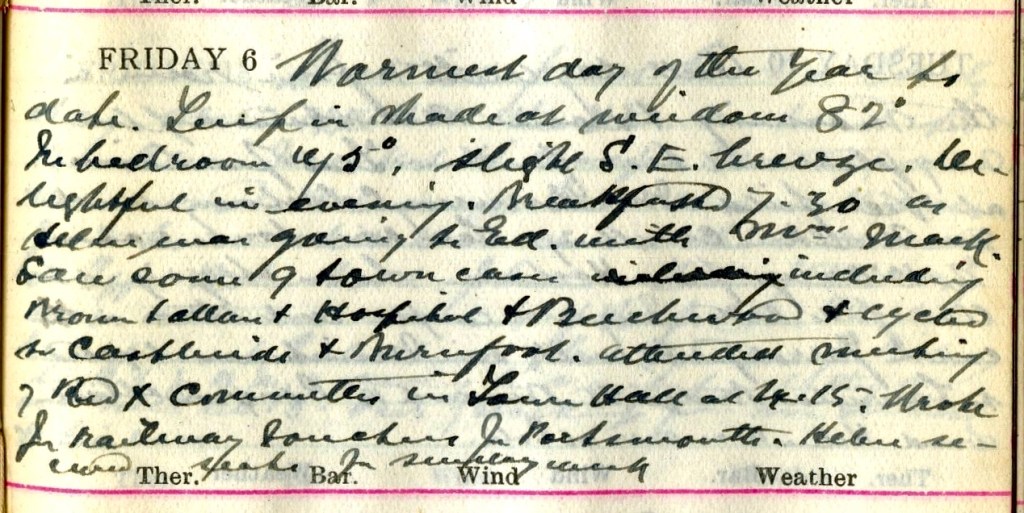 Ther. Bar. Wind Weather
FRIDAY 6 Warmest day of the Year to
date. Temp in shade at window 82°
In bedroom 75°. slight S. E. breeze. De-
lightful in evening. Breakfasted 7.30 as
Helen was going to Ed. with Mrs. Mack.
Saw some of town cases including
Brown Hospital & Birchwood & cycled
to & Burnfoot. attended meeting
of Red X Committee in Town Hall at 4.15. Wrote
for Railway Vouchers for Portsmouth. Helen se-
cured seats for week
Ther. Bar. Wind Weather